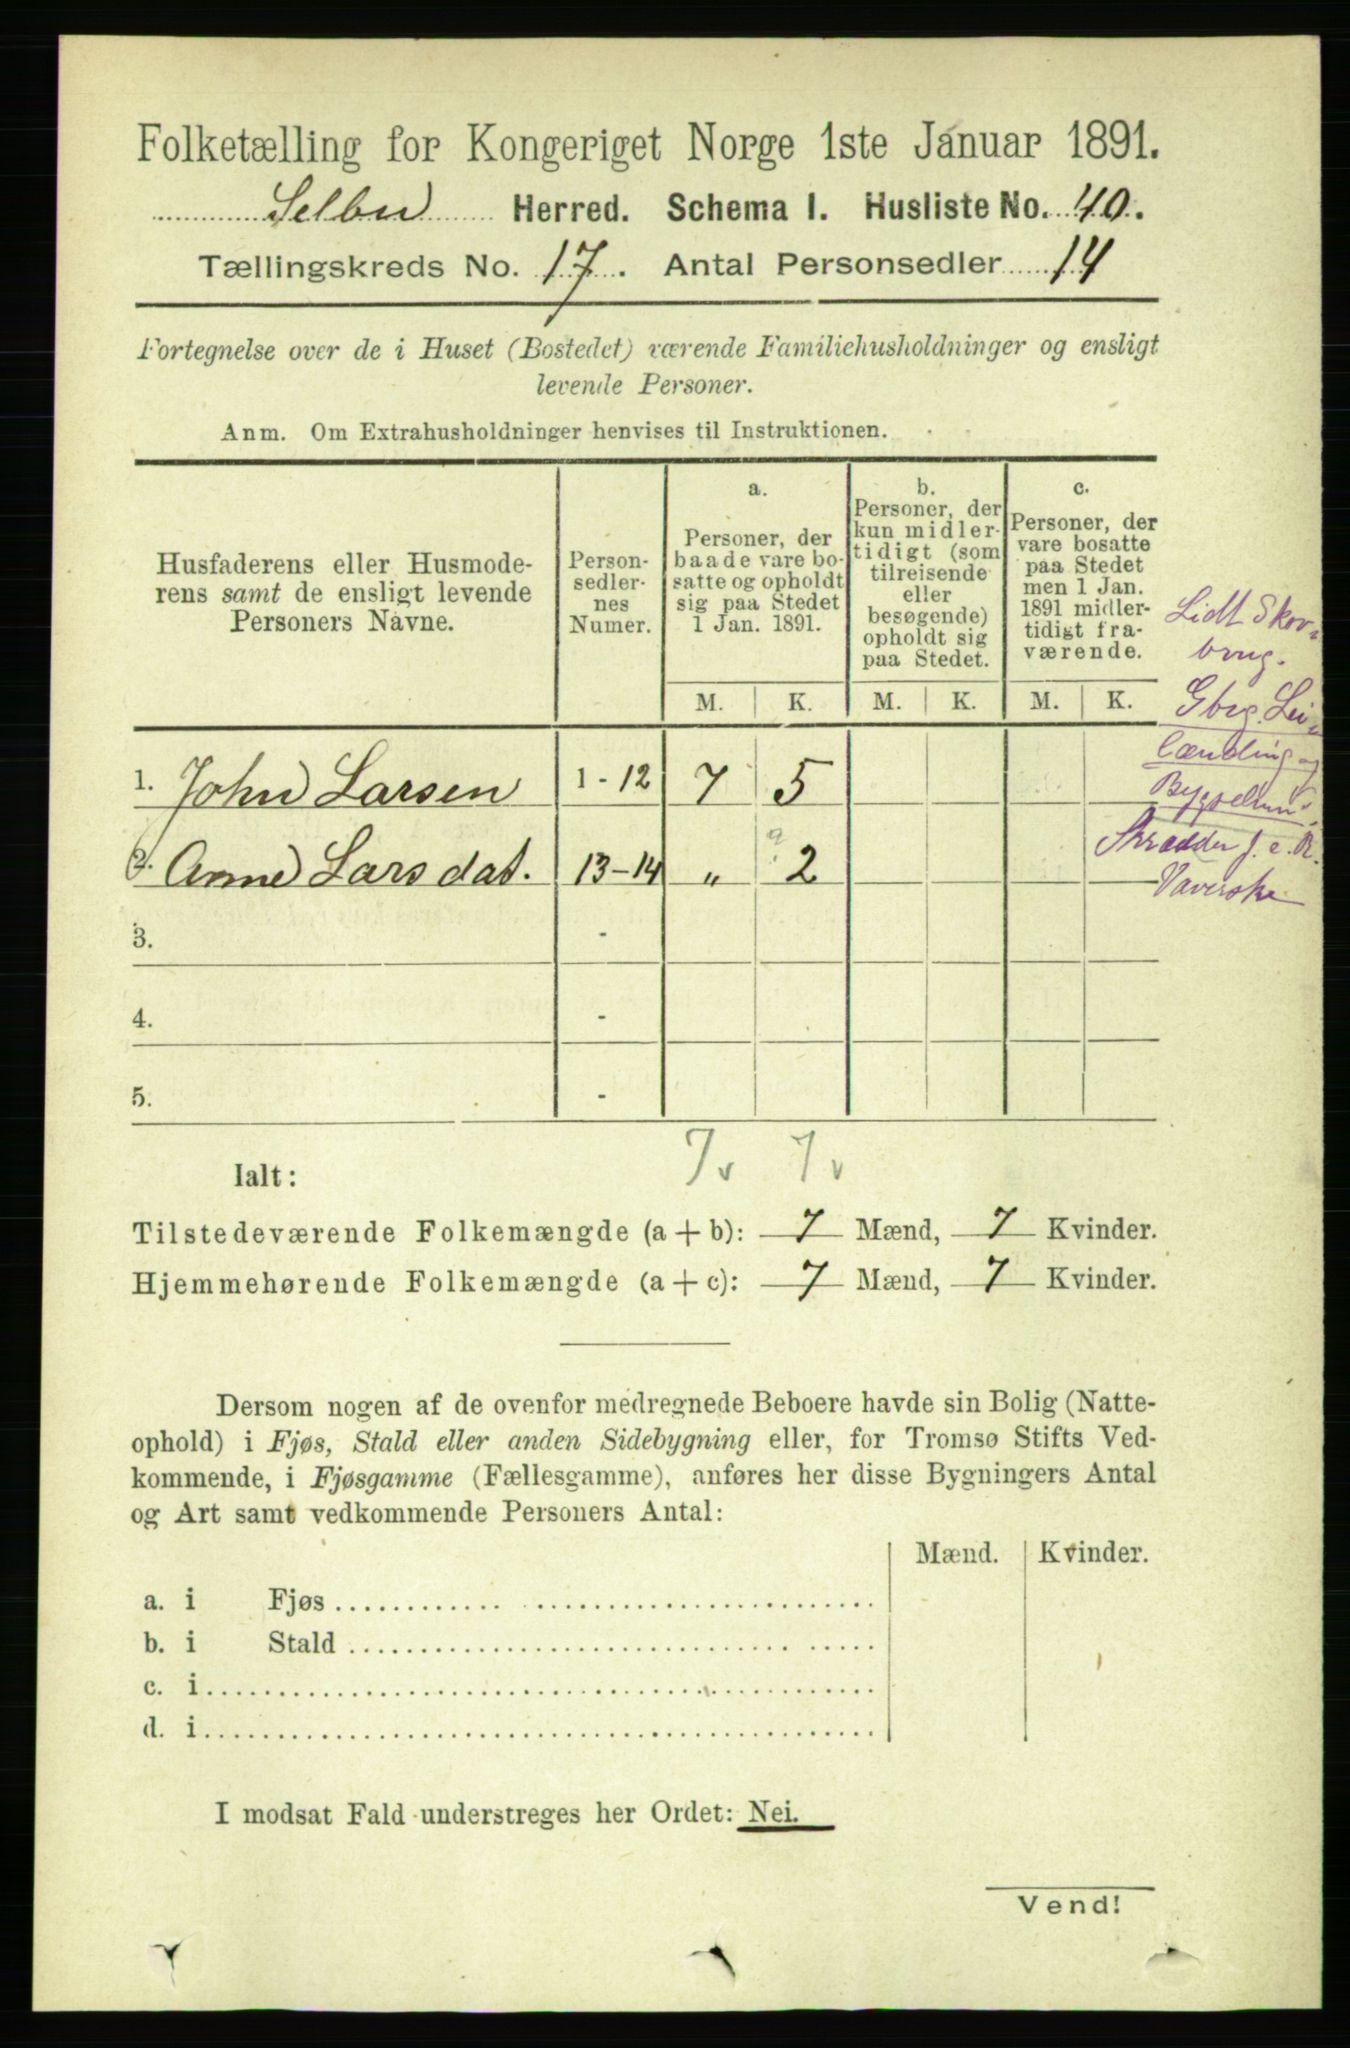 Folketælling for Kongeriget Norge 1ste Januar 1891.
Selbu Herred. Schema I. Husliste No. 40.
Tællingskreds No. 17. Antal Personsedler 14
Fortegnelse over de i Huset (Bostedet) værende Familiehusholdninger og ensligt
levende Personer.
Anm. Om Extrahusholdninger henvises til Instruktionen.
Husfaderens eller Husmode-
rens samt de ensligt levende
Personers Navne.
Person-
sedler-
nes
Numer.
a.
Personer, der
baade vare bo-
satte og opholdt
sig paa Stedet
1 Jan. 1891.
b.
Personer, der
kun midler-
tidigt (som
tilreisende
eller
besøgende)
opholdt sig
paa Stedet.
c.
Personer, der
vare bosatte
paa Stedet
men 1 Jan.
1891 midler-
tidigt fra-
værende.
M. K. M. K. M. K.
Lidt Skov-
brug.
Gbrg. Lei-
lænding og
1. John Larsen 1-12 7 5
2. Anne Larsdat. 13-14 „ 2
Skrædder f. e. R.
Væverske
3. -
4. -
5. -
7v 7v
Ialt:
Tilstedeværende Folkemængde (a + b): 7 Mænd, 7 Kvinder.
Hjemmehørende Folkemængde (a + c): 7 Mænd, 7 Kvinder.
Dersom nogen af de ovenfor medregnede Beboere havde sin Bolig (Natte-
ophold) i Fjøs, Stald eller anden Sidebygning eller, for Tromsø Stifts Ved-
kommende, i Fjøsgamme (Fællesgamme), anføres her disse Bygningers Antal
og Art samt vedkommende Personers Antal:
Mænd. Kvinder.
a. i Fjøs
b. i Stald
c. i
d. i
I modsat Fald understreges her Ordet: Nei.
Vend!